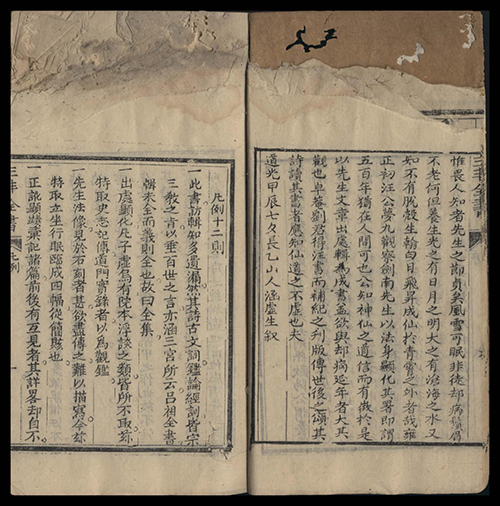 惟畏人知者先生之節貞矣風雪可眠非徒却病
不老何但養生光之有日月之明大之有滄海之水又
如不有脫殼生翰白日飛昇成仙於青霄之外者哉雍
正初汪公夢九觀察劍南先生以法身顯化其畧即謂
五百年猶在人間可也公知神仙之道信而有徵於是
以先生文章出處輯為成書盖欲與却病延年者大其
觀也卓菴劉君得汪書而補紀之刋版傳世後之頌其
詩讀其書者應知仙道之不虛也夫
道光甲辰七夕長乙山人涵虛生叙
三丰全書
凡例十二則
一此書訪輯多遺編然其詩古文詞鑑論經訓皆宗
三敎之旨以垂百世之言亦涵三宮所云呂祖全書
輯未全而義則全也故曰全集
一出處顯化凡子虛烏有院本浮談之類皆所不取茲
特取史志傳道門實錄者以為觀鑑
一先生法像見於石刻者甚欲盡傳之難以描寫今茲
特取立坐行眠臨成四幅從簡賅也
一正訛顯蹟記諸篇前後有互見者其詳畧却自不
三丰全書 凡例 一